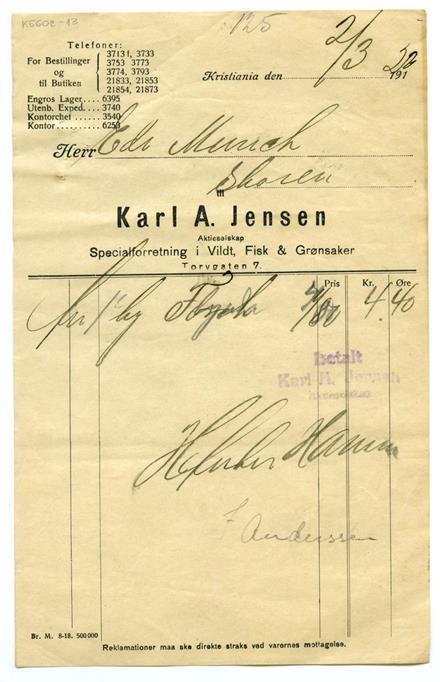 K6602-13
125
Telefoner:
For Bestillinger og til Butiken
3713, 3733
3753 3773
3774, 3793
21833, 21853
21854, 21873
Engros Lager.... 6395
Utenb. Exped. 3740
Kontorchef .... 3540
Kontor .......... 6253
Kristiania den 2/3 191
Herr Edv Munch
Skøien
til
Karl A. Jensen
Aktieselskap
Specialforretning i Vildt, Fisk & Grønsaker
Torvgaten 7.
Pris Kr. Øre
4.40
betalt
Karl A. Jensen
Aktieselskap
Anderssen
Br. M. 8-18. 500000
Reklamationer maa ske direkte straks ved varernes mottagelse.